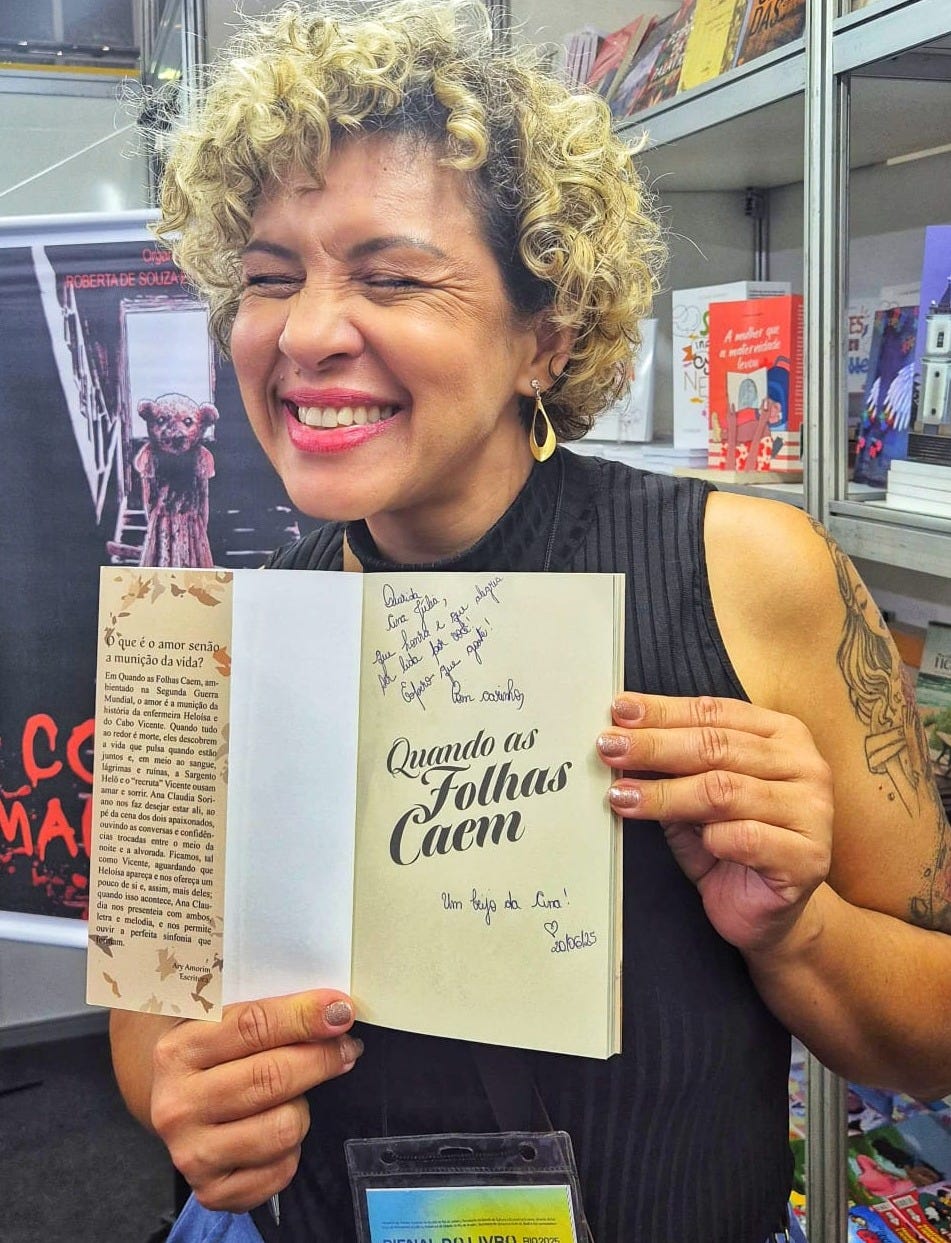 Organ
ROBERTA DE SOUZA
CO
MA
A mulher que
a maternidade
levou
O que é o amor senão
a munição da vida?
Em Quando as Folhas Caem, am-
bientado na Segunda Guerra
Mundial, o amor é a munição da
história da enfermeira Heloísa e
do Cabo Vicente. Quando tudo
ao redor é morte, eles descobrem
a vida que pulsa quando estão
jumos e, em meio ao sangue,
lágrimas e ruínas, a Sargento
Helô e o “recruta” Vicente ousam
amar e sorrir. Ana Claudia Sori-
ano nos faz desejar estar ali, ao
pé da cena dos dois apaixonados,
ouvindo as conversas e confidên-
cias trocadas entre o meio da
noite e a alvorada. Ficamos, tal
como Vicente, aguardando que
Heloísa apareça e nos ofereça um
pouco de si e, assim, mais deles;
quando isso acontece, Ana Clau-
dia nos presenteia com ambos,
letra e melodia, e nos permite
ouvir a perfeita sinfonia que
formam.
Ary Amorim
Escritora
Querida
Ana Júlia,
que honra e que alegria
ser lida por você!
Espero que goste!
Com carinho,
Quando as
Folhas
Caem
Um beijo da Ana!
20/06/25
BIENAL DO LIVRO RIO 2025